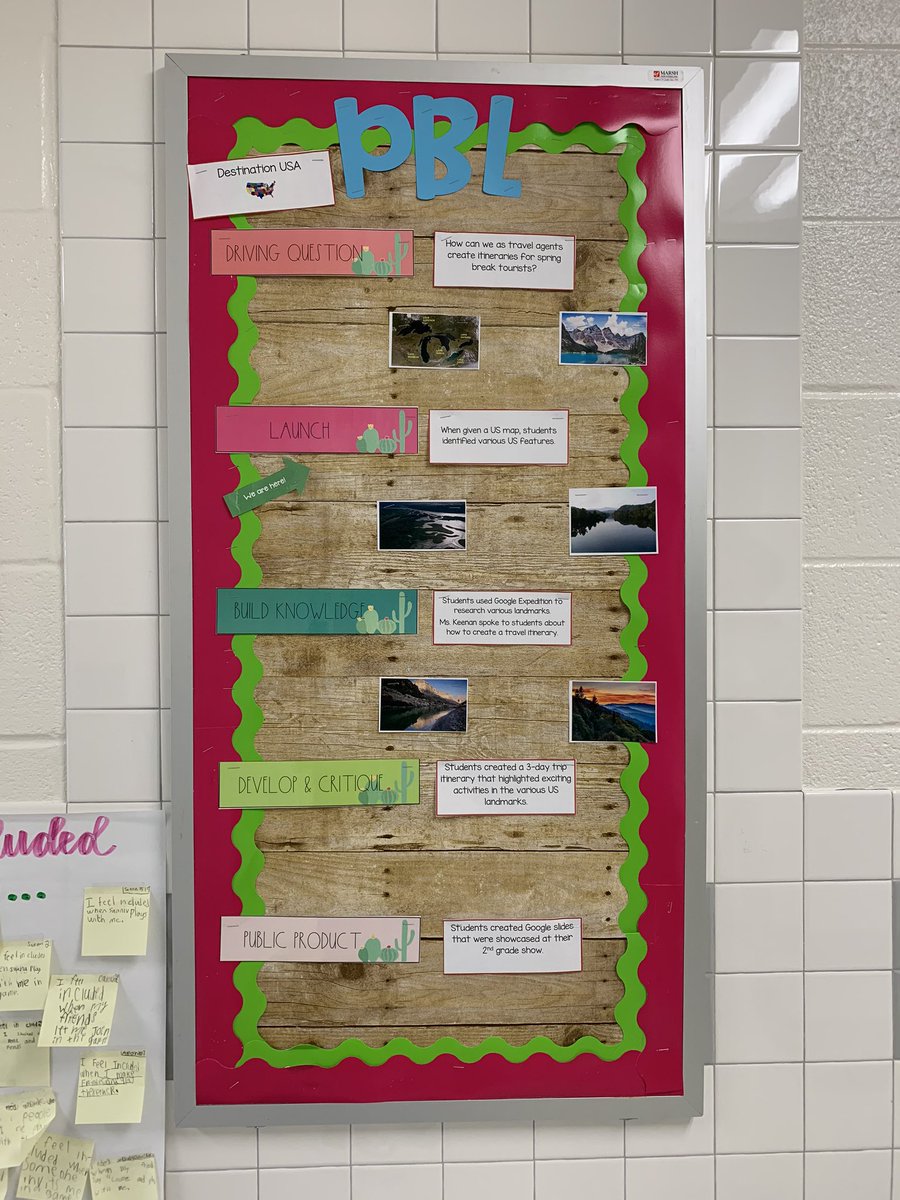 MARSH
PBL
Destination USA
DRIVING QUESTION
How can we as travel agents
create itineraries for spring
break tourists?
LAUNCH
When given a US map, students
identified various US features.
We are here!
BUILD KNOWLEDGE
Students used Google Expedition to
research various landmarks.
Ms. Keenan spoke to students about
how to create a travel itinerary.
DEVELOP & CRITIQUE
Students created a 3-day trip
itinerary that highlighted exciting
activities in the various US
landmarks.
PUBLIC PRODUCT
Students created Google slides
that were showcased at their
2nd grade show.
uded
I feel
when
plays
with me.
feel in
me in
game.
I feel
included
when my
friends
let me join
in the
I feel Included
when I make
people
feel in-
someone